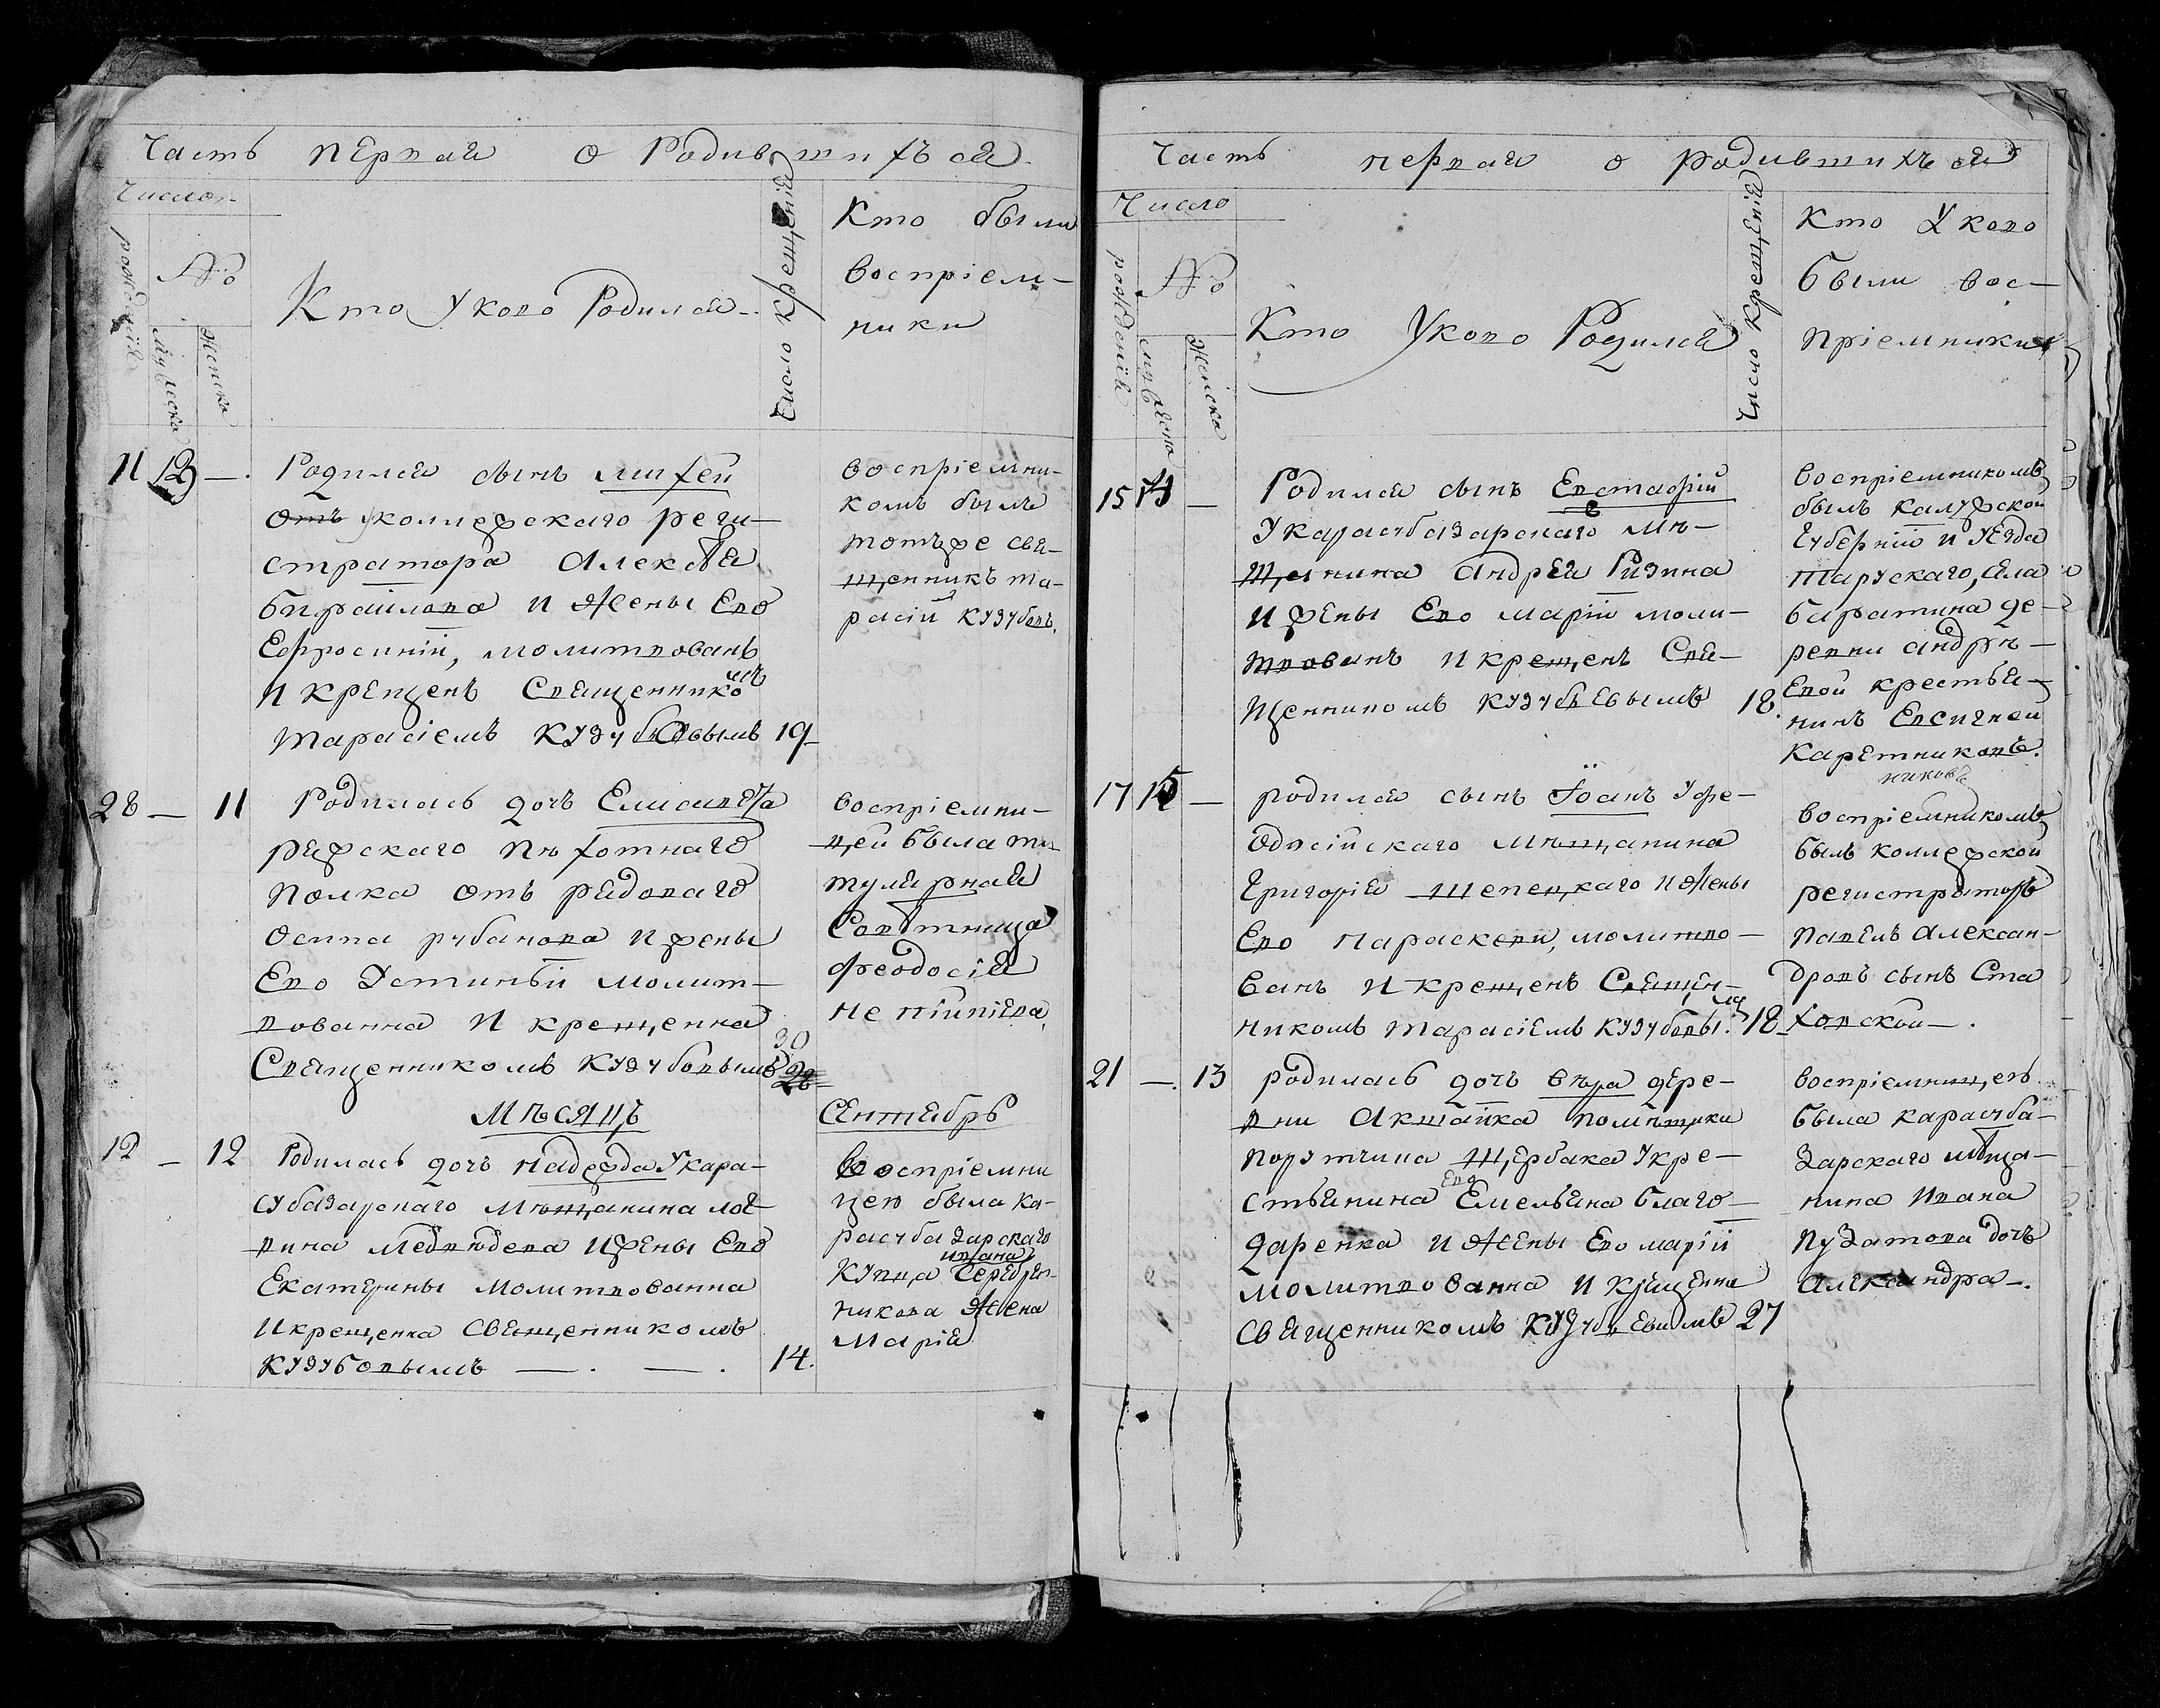 Часть первая о Родившихъся
Число
рождения
№
мужеска
женска
Кто Укого Родился
Число крещения
Кто были
воспріем-
ники
11 — Родился сынъ михей
отъ уколлежскаго реги-
стратора Алексѣя
бирайлова и жены Его
Ефросиніи, молитвованъ
и крещенъ Священникомъ
Тарасіемъ 19
воспріемни-
комъ былъ
тотъже свя-
щенникъ та-
расій
28 — 11 Родилась дочь Елисавета
ряжскаго пѣхотнаго
полка отъ рядоваго
Осипа рубанова и жены
Его Устиньи молит-
вованна и крещенна
Священникомъ 30
воспріемни-
цей была ти-
тулярная
Совѣтница
феодосія
Мѣсяцъ Сентябрь
12 — 12 Родилась дочь Надежда Укара-
субазарскаго мѣщанина лог-
вина медвѣдева и жены Его
Екатерины молитвованна
и крещенна священникомъ
14.
воспріемни
цею была ка-
расубазарскаго
ивана
купца Серебрен-
никова жена
Марія
Часть первая о родившихъся
Число
рожденія
№
мужеска
женска
Кто Укого Родился
Число крещенія
Кто Укого
были вос-
пріемники
15 — Родился сынъ Евстафій
Укарасубазарскаго мѣ-
щанина Андрея Ризина
и жены Его маріи моли-
твованъ и крещенъ Свя-
щенникомъ 18.
воспріемникомъ
былъ калужской
Губерніи и уезда
тарускаго, села
баратина де-
ревни андрѣ-
евой крестья-
нинъ Евсигней
каретниковъ.
никовъ
17 15 — родился сынъ Іоанъ Уфе-
одосійскаго мѣщанина
Григорія Шепецкаго и жены
Его Параскеви, молитво-
ванъ и крещенъ Священ-
никомъ тарасіемъ 18
воспріемникомъ
былъ коллежской
регистраторъ
павелъ Алексан-
дровъ сынъ Ста
ховской.
21 — 13 родилась дочь вѣра дере-
вни Акшайка помѣщика
порутчина Щербака Укре-
Его
стьянина Емельяна благо-
даренка и жены Его маріи
молитвованна и крещенна
священникомъ 27
воспріемницею
была карасуба-
зарскаго мѣща-
нина ивана
пузатова дочь
Александра.